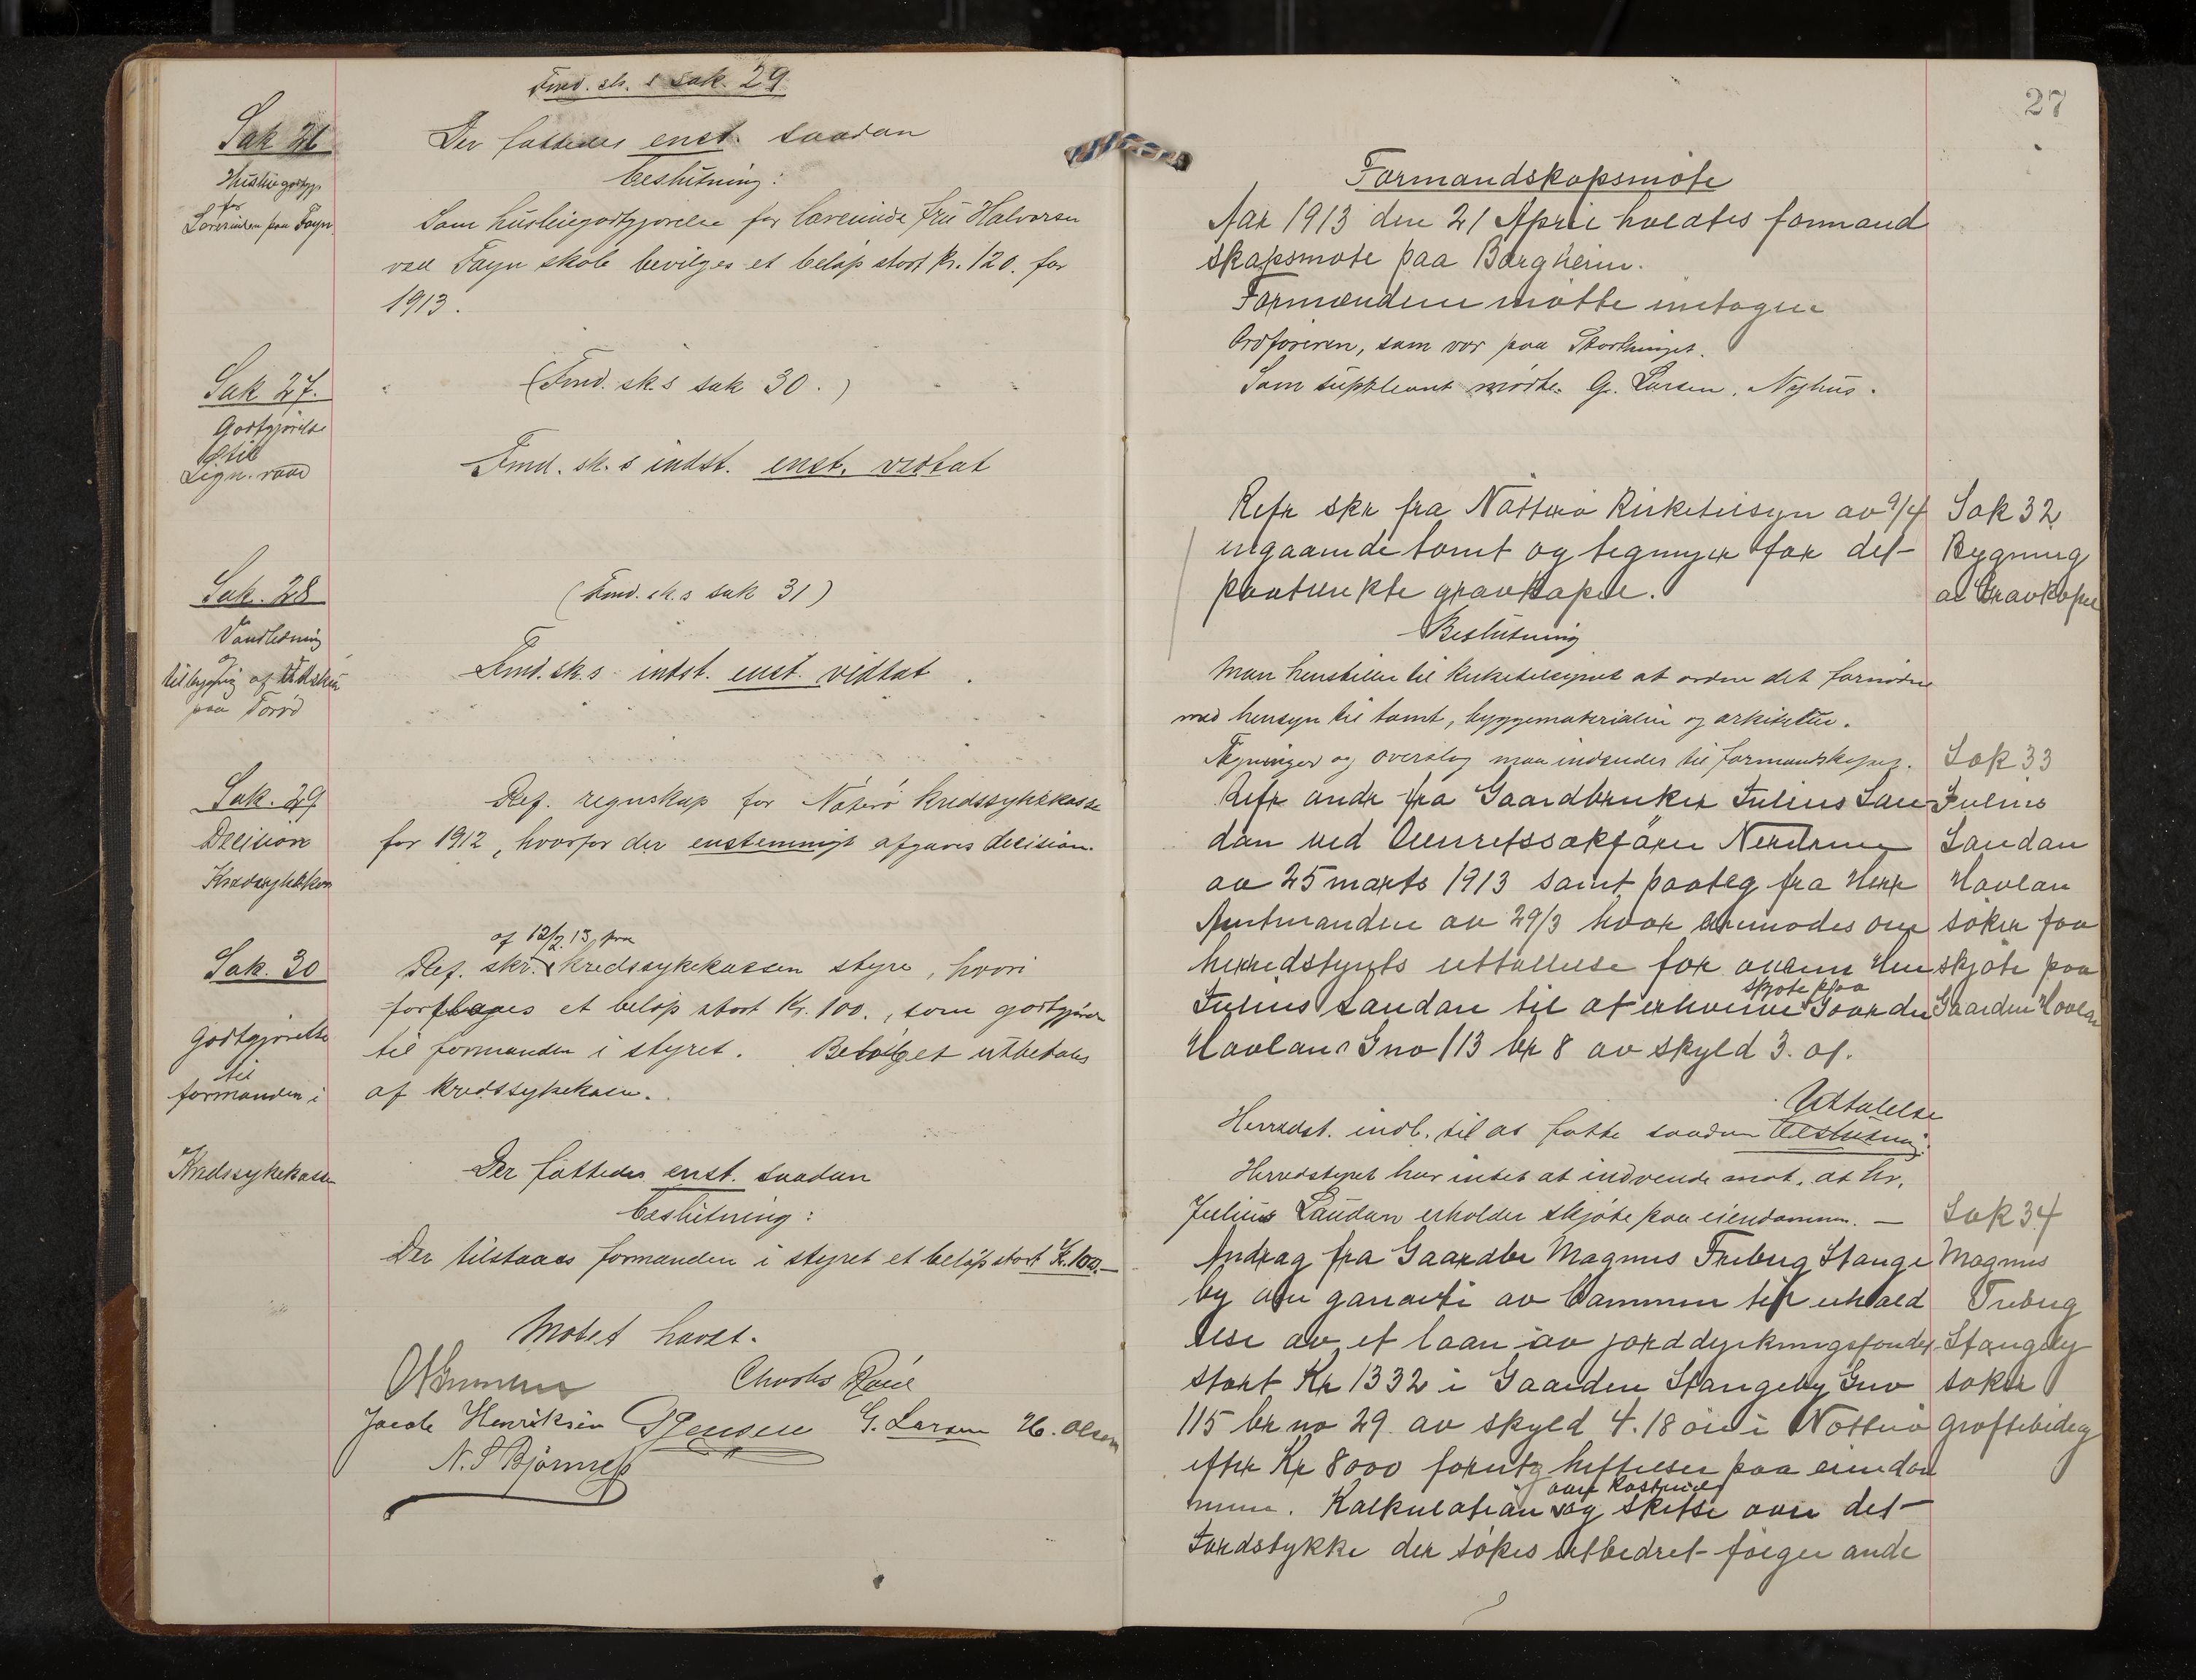 Fmd. sk. s sak. 29
Sak 26
Husleiegodtgj.
for
Lærerinden paa Føyn
Der fattedes enst. saadan
beslutning:
Som husleiegodtgjørelse for lærerinde fru Halvorsen
ved Føyn skole bevilges et beløp stort kr. 120. for
1913.
Sak 27.
Godtgjørelse
til
Lign. raad
(Fmd. sk.s sak 30.)
Fmd. sk. s indst. enst. vedtat
Sak. 28
Vandledning
og
tilbygning af
paa Torød
(Fmd. sk.s sak 31)
Fmd. sk. s indst. enst. vedtat.
Sak. 29
Decision
Kredssykekas
Ref. regnskap for Nøterø kredssykekasse
for 1912, hvorfor der enstemmigt afgaves decision.
Sak. 30
Godtgjørelse
til
formanden i
Kredssykekassen
af 12/2.13, fra
Ref. skr. kredssykekassen styre, hvori
forslages et beløp stort Kr. 100., som godtgjørelse
til formanden i styret. Beløpet utbetales
af kredssykekasse.
Der fattedes enst. saadan
beslutning:
Der tilstaaes formanden i styret et beløp stort Kr. 100.—
Møtet hævet.
Charles Røed
Jacob Henriksen Jensen G. Larsen H. Olsen
N. S Bjørnnes
27
Formandskapsmøte
Aar 1913 den 21 April holdtes formand
skapsmøte paa Borgheim.
Formændene møtte intagen
Ordføreren, som var paa Storthinget.
Som suppleant mødte G. Larsen, Nyhus.
Refr skr fra Nøtterø Kirketilsyn av 9/4
angaaende tomt og tegninger for det
paatænkte gravkapel.
Sak 32
Bygning
av Gravkapel
Beslutning
Man henstiller til kirketilsynet at ordne det fornødne
med hensyn til tomt, byggematerialer og arkitektur.
Tegninger og overslag maa indsendes til formandskapet.
Sak 33
Julius
Sandan
Havlan
søker faa
skjøte paa
Gaarden Havlan
Refr andr fra Gaardbruker Julius San
dan ved Overretssakfører Nerdrum
av 25 marts 1913 samt paateg fra Herr
Amtmanden av 29/3 hvor anmodes om
herredstyrets uttallelse for ovenn Herr
skjøte paa
Julius Sandan til at erhverve Gaarden
Havlan Gno 113 br 8 av skyld 3. 01.
Uttalelse
Herredst. indb. til at fatte saadan beslutning:
Herredstyret har intet at indvende mot, at hr.
Julius Sandan erholder skjøte paa eiendommen. —
Sak 34
Magnus
Freberg
Stangeby
søker
grøftebidrag
Andrag fra Gaardbr Magnus Freberg Stange
by om garanti av kommunen til erhold
else av et laan av jorddyrkningsfondet
stort Kr 1332 i Gaarden Stangeby Gno
115 br no 29. av skyld 4.18 øre i Nøtterø
efter Kr 8000 forutg heftelser paa eiendom
over kostnad
men. Kalkulation og skitse over det
Jordstykke der søkes utbedret følger ande